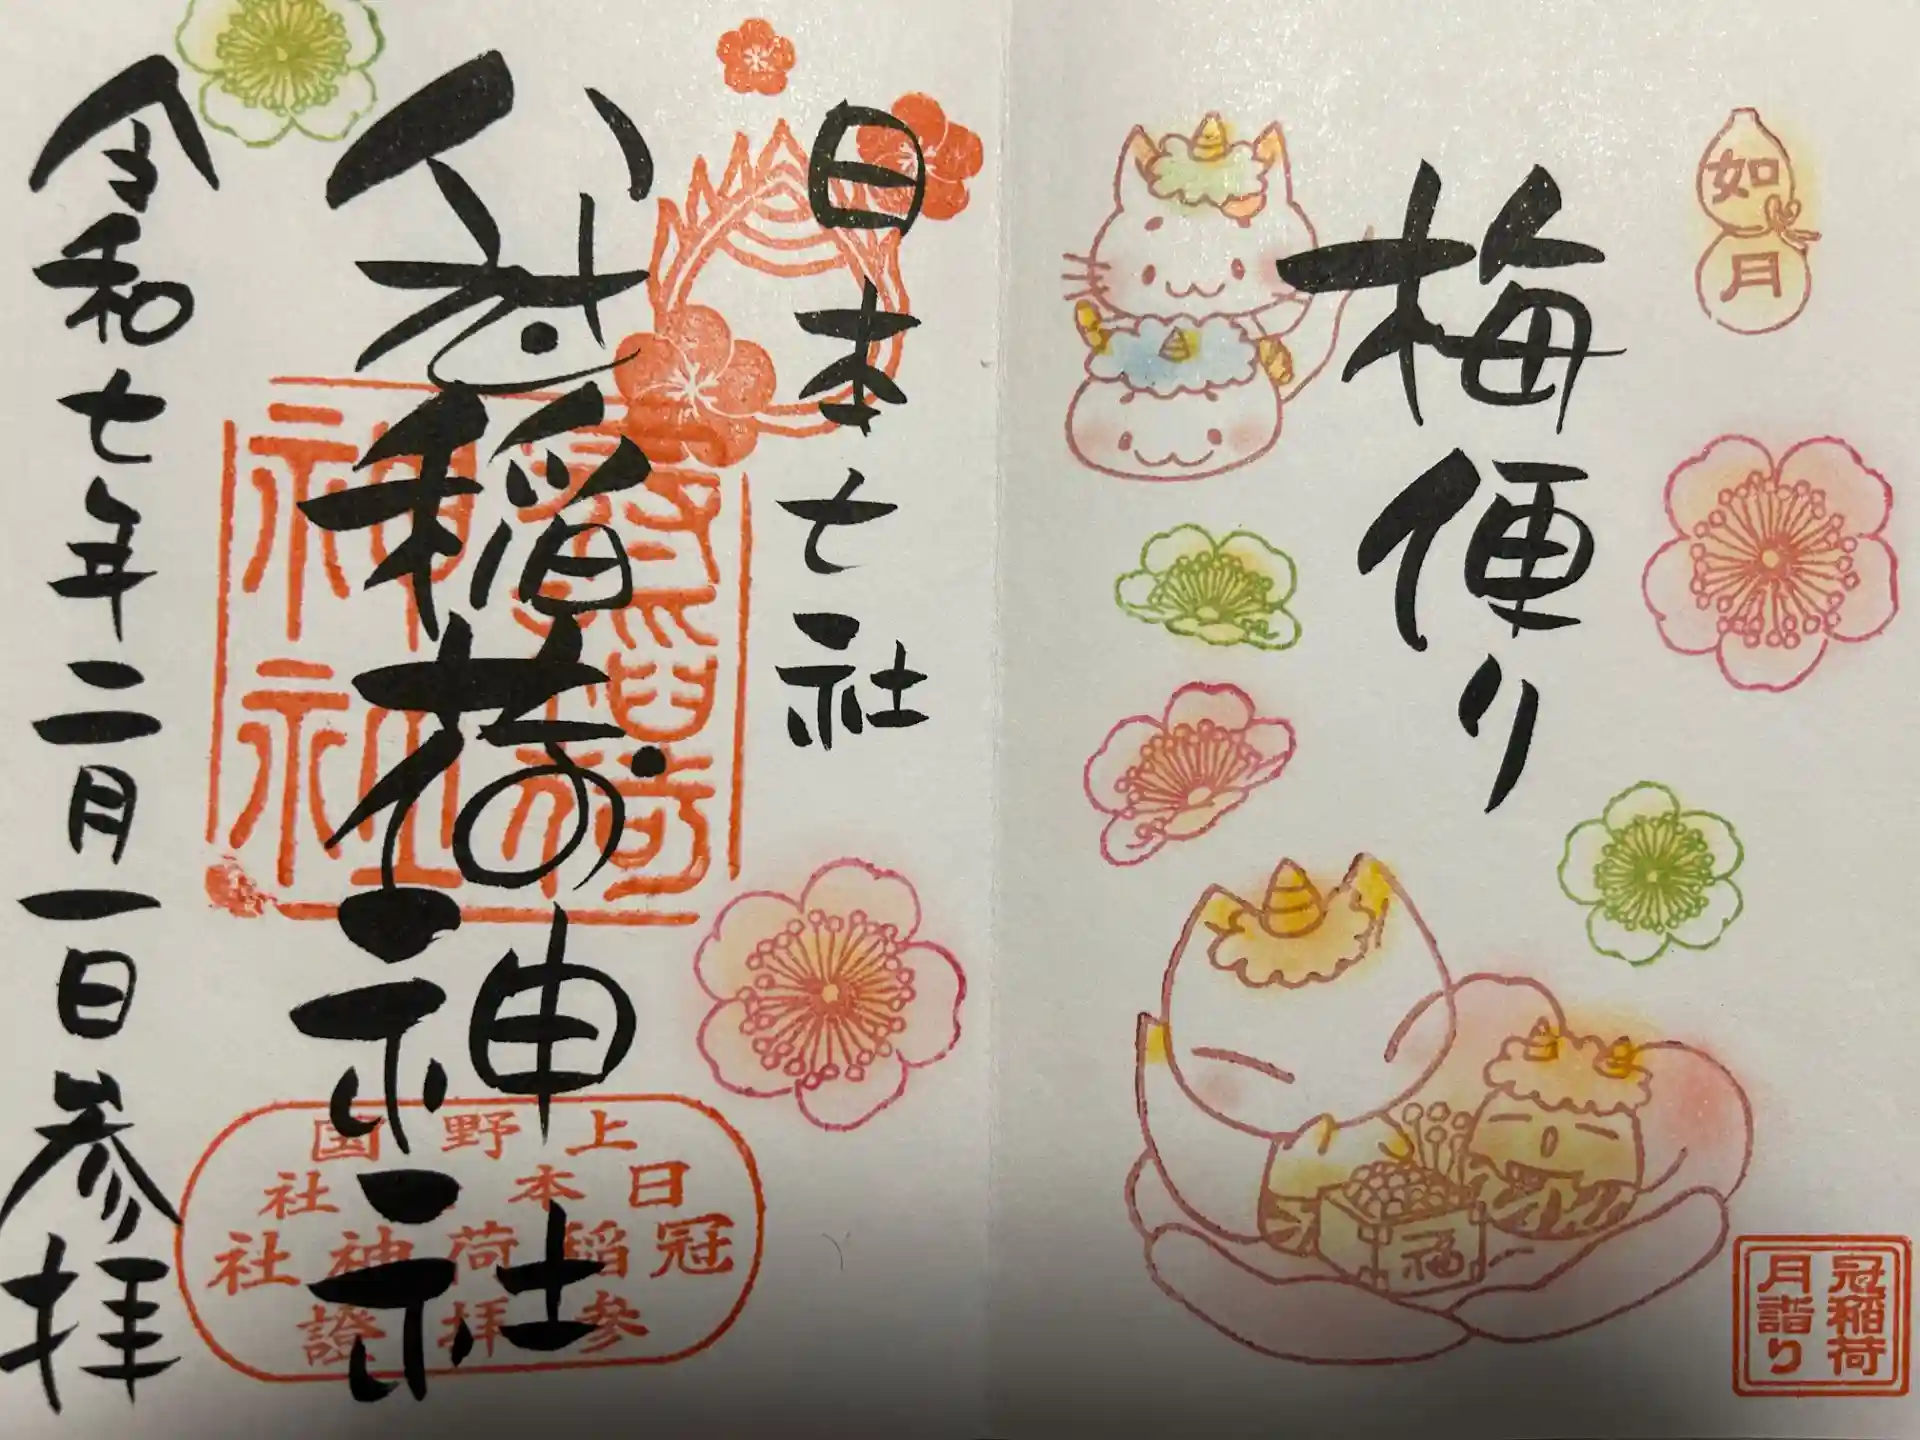 如月
梅便り
福
冠稲荷
月詣り
日本七社
冠稲荷神社
令和七年二月一日参拝
上野国
日本七社
冠稲荷神社
参拝證